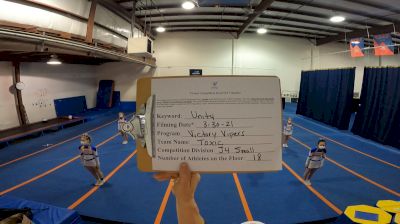 Keyword: Unity
Filming Date* 3-30-21
Program Victory Vipers
Team Name: Toxic
Competition Division J4 Small
Number of Athletes on the Floor 18